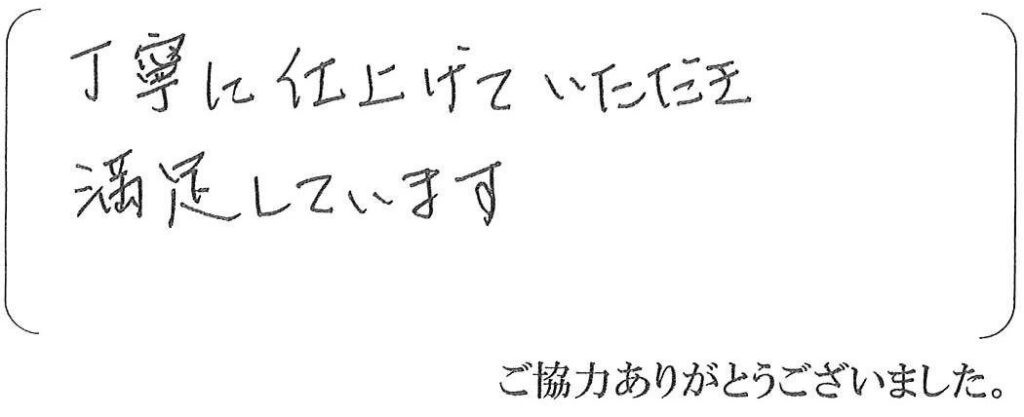 丁寧に仕上げていただき
満足しています
ご協力ありがとうございました。